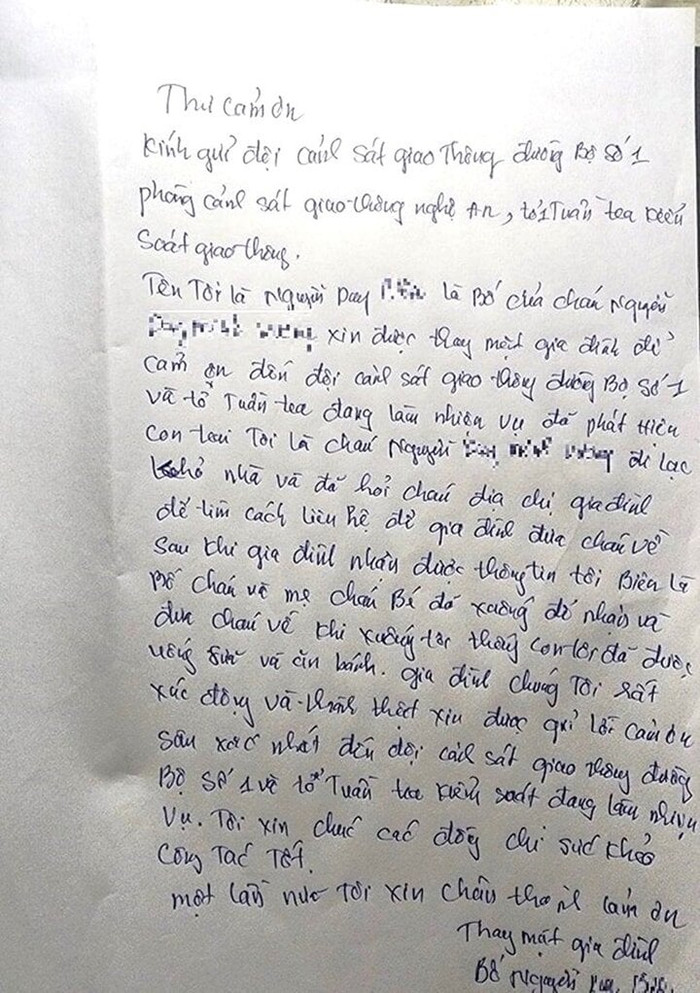 Thư cảm ơn
Kính gửi đội cảnh sát giao thông đường Bộ số 1
phòng cảnh sát giao thông nghệ An, tổ 1 Tuần tra kiểm
Soát giao thông.
Tên Tôi là Nguyễn Duy là Bố của cháu Nguyễn
xin được thay mặt gia đình để
cảm ơn đến đội cảnh sát giao thông đường Bộ số 1
và tổ Tuần tra đang làm nhiệm vụ đã phát hiện
con trai Tôi là cháu Nguyễn đi lạc
khỏi nhà và đã hỏi cháu địa chỉ gia đình
để tìm cách liên hệ để gia đình đưa cháu về
Sau khi gia đình nhận được thông tin tôi Biên là
Bố cháu và mẹ cháu Bé đã xuống để nhận và
đưa cháu về khi xuống tôi thấy con tôi đã được
uống sữa và ăn bánh. gia đình chúng Tôi rất
xúc động và thành thật xin được gửi lời cảm ơn
sâu sắc nhất đến đội cảnh sát giao thông đường
Bộ số 1 và tổ Tuần tra kiểm soát đang làm nhiệm
Vụ. Tôi xin chúc các đồng chí sức khỏe
Công Tác Tốt.
một lần nữa Tôi xin chân thành cảm ơn
Thay mặt gia đình
Bố Nguyễn